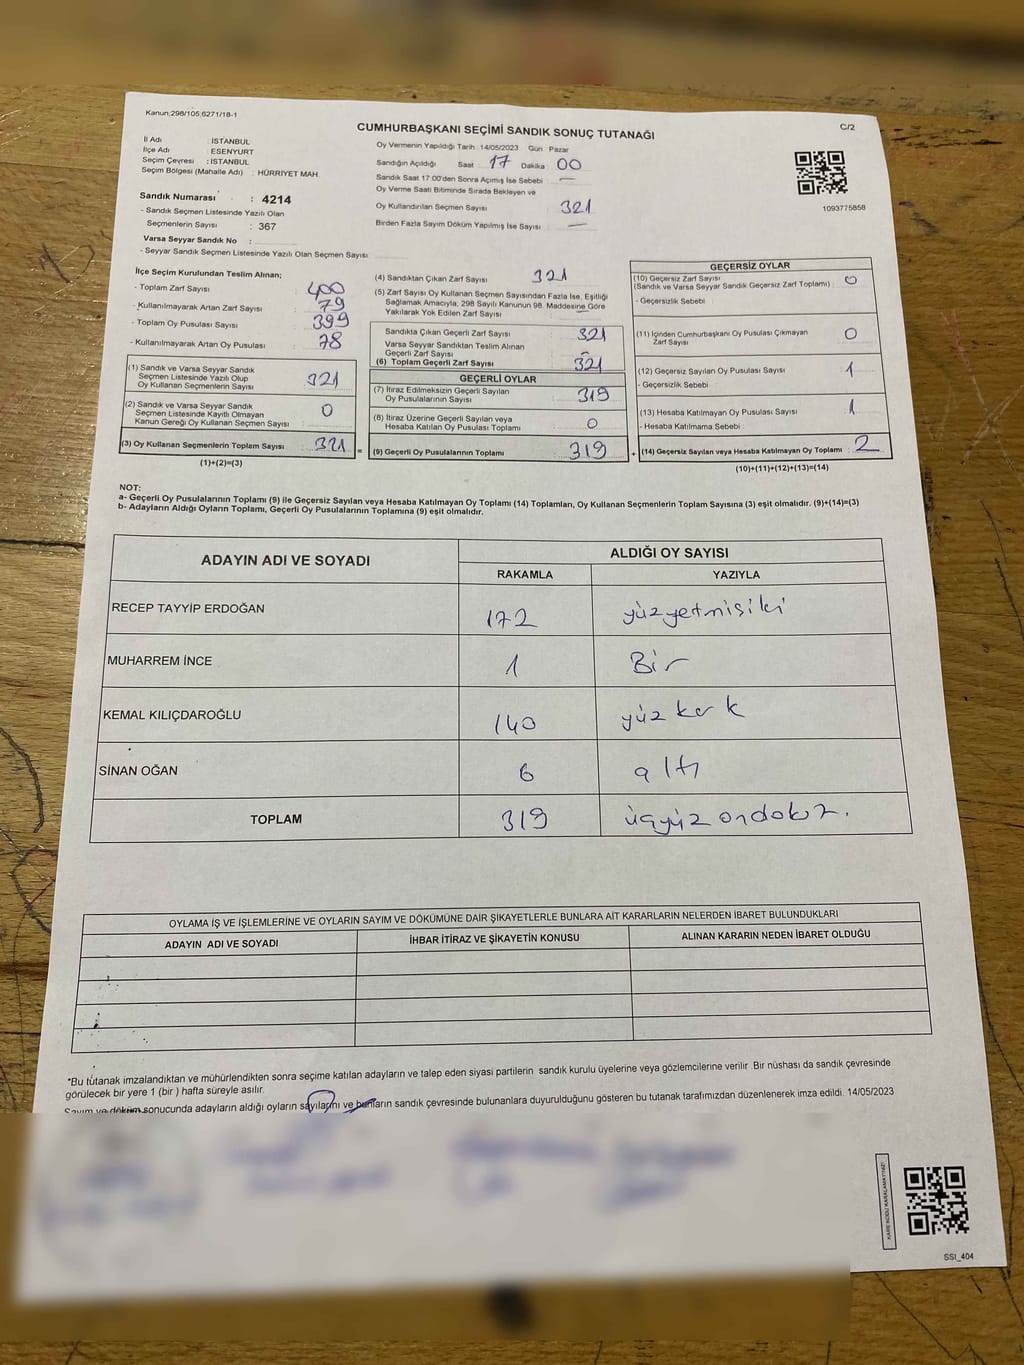 Kanun:298/105,6271/18-1
C/2
CUMHURBAŞKANI SEÇİMİ SANDIK SONUÇ TUTANAĞI
İl Adı : İSTANBUL
İlçe Adı : ESENYURT
Seçim Çevresi : İSTANBUL
Seçim Bölgesi (Mahalle Adı) : HÜRRİYET MAH.
Sandık Numarası : 4214
- Sandık Seçmen Listesinde Yazılı Olan
Seçmenlerin Sayısı : 367
Varsa Seyyar Sandık No :
- Seyyar Sandık Seçmen Listesinde Yazılı Olan Seçmen Sayısı
Oy Vermenin Yapıldığı Tarih :14/05/2023 Gün Pazar
Sandığın Açıldığı Saat 17 Dakika 00
Sandık Saat 17:00'den Sonra Açılmış İse Sebebi —
Oy Verme Saati Bitiminde Sırada Bekleyen ve
Oy Kullandırılan Seçmen Sayısı 321
Birden Fazla Sayım Döküm Yapılmış İse Sayısı —
1093775858
İlçe Seçim Kurulundan Teslim Alınan;
- Toplam Zarf Sayısı 400
- Kullanılmayarak Artan Zarf Sayısı 79
- Toplam Oy Pusulası Sayısı 399
- Kullanılmayarak Artan Oy Pusulası 78
(1) Sandık ve Varsa Seyyar Sandık
Seçmen Listesinde Yazılı Olup
Oy Kullanan Seçmenlerin Sayısı 321
(2) Sandık ve Varsa Seyyar Sandık
Seçmen Listesinde Kayıtlı Olmayan
Kanun Gereği Oy Kullanan Seçmen Sayısı 0
(3) Oy Kullanan Seçmenlerin Toplam Sayısı 321 =
(1)+(2)=(3)
(4) Sandıktan Çıkan Zarf Sayısı 321
(5) Zarf Sayısı Oy Kullanan Seçmen Sayısından Fazla İse, Eşitliği
Sağlamak Amacıyla, 298 Sayılı Kanunun 98. Maddesine Göre
Yakılarak Yok Edilen Zarf Sayısı —
Sandıkta Çıkan Geçerli Zarf Sayısı 321
Varsa Seyyar Sandıktan Teslim Alınan
Geçerli Zarf Sayısı —
(6) Toplam Geçerli Zarf Sayısı 321
GEÇERLİ OYLAR
(7) İtiraz Edilmeksizin Geçerli Sayılan
Oy Pusulalarının Sayısı 319
(8) İtiraz Üzerine Geçerli Sayılan veya
Hesaba Katılan Oy Pusulası Toplamı 0
(9) Geçerli Oy Pusulalarının Toplamı 319 +
GEÇERSİZ OYLAR
(10) Geçersiz Zarf Sayısı 0
(Sandık ve Varsa Seyyar Sandık Geçersiz Zarf Toplamı) :
- Geçersizlik Sebebi :
(11) İçinden Cumhurbaşkanı Oy Pusulası Çıkmayan
Zarf Sayısı 0
(12) Geçersiz Sayılan Oy Pusulası Sayısı : 1
- Geçersizlik Sebebi :
(13) Hesaba Katılmayan Oy Pusulası Sayısı : 1
- Hesaba Katılmama Sebebi :
(14) Geçersiz Sayılan veya Hesaba Katılmayan Oy Toplamı : 2
(10)+(11)+(12)+(13)=(14)
NOT:
a- Geçerli Oy Pusulalarının Toplamı (9) ile Geçersiz Sayılan veya Hesaba Katılmayan Oy Toplamı (14) Toplamları, Oy Kullanan Seçmenlerin Toplam Sayısına (3) eşit olmalıdır. (9)+(14)=(3)
b- Adayların Aldığı Oyların Toplamı, Geçerli Oy Pusulalarının Toplamına (9) eşit olmalıdır.
ADAYIN ADI VE SOYADI ALDIĞI OY SAYISI
RAKAMLA YAZIYLA
RECEP TAYYİP ERDOĞAN 172 yüzyetmisiki
MUHARREM İNCE 1 Bir
KEMAL KILIÇDAROĞLU 140 yüz kırk
SİNAN OĞAN 6 altı
TOPLAM 319 üçyüz ondokuz.
OYLAMA İŞ VE İŞLEMLERİNE VE OYLARIN SAYIM VE DÖKÜMÜNE DAİR ŞİKAYETLERLE BUNLARA AİT KARARLARIN NELERDEN İBARET BULUNDUKLARI
ADAYIN ADI VE SOYADI İHBAR İTİRAZ VE ŞİKAYETİN KONUSU ALINAN KARARIN NEDEN İBARET OLDUĞU
*Bu tutanak imzalandıktan ve mühürlendikten sonra seçime katılan adayların ve talep eden siyasi partilerin sandık kurulu üyelerine veya gözlemcilerine verilir. Bir nüshası da sandık çevresinde
görülecek bir yere 1 (bir ) hafta süreyle asılır.
Sayım ve döküm sonucunda adayların aldığı oyların sayılarını ve bunların sandık çevresinde bulunanlara duyurulduğunu gösteren bu tutanak tarafımızdan düzenlenerek imza edildi. 14/05/2023
KARE KODU KARALAMAYINIZ!
SSI_404